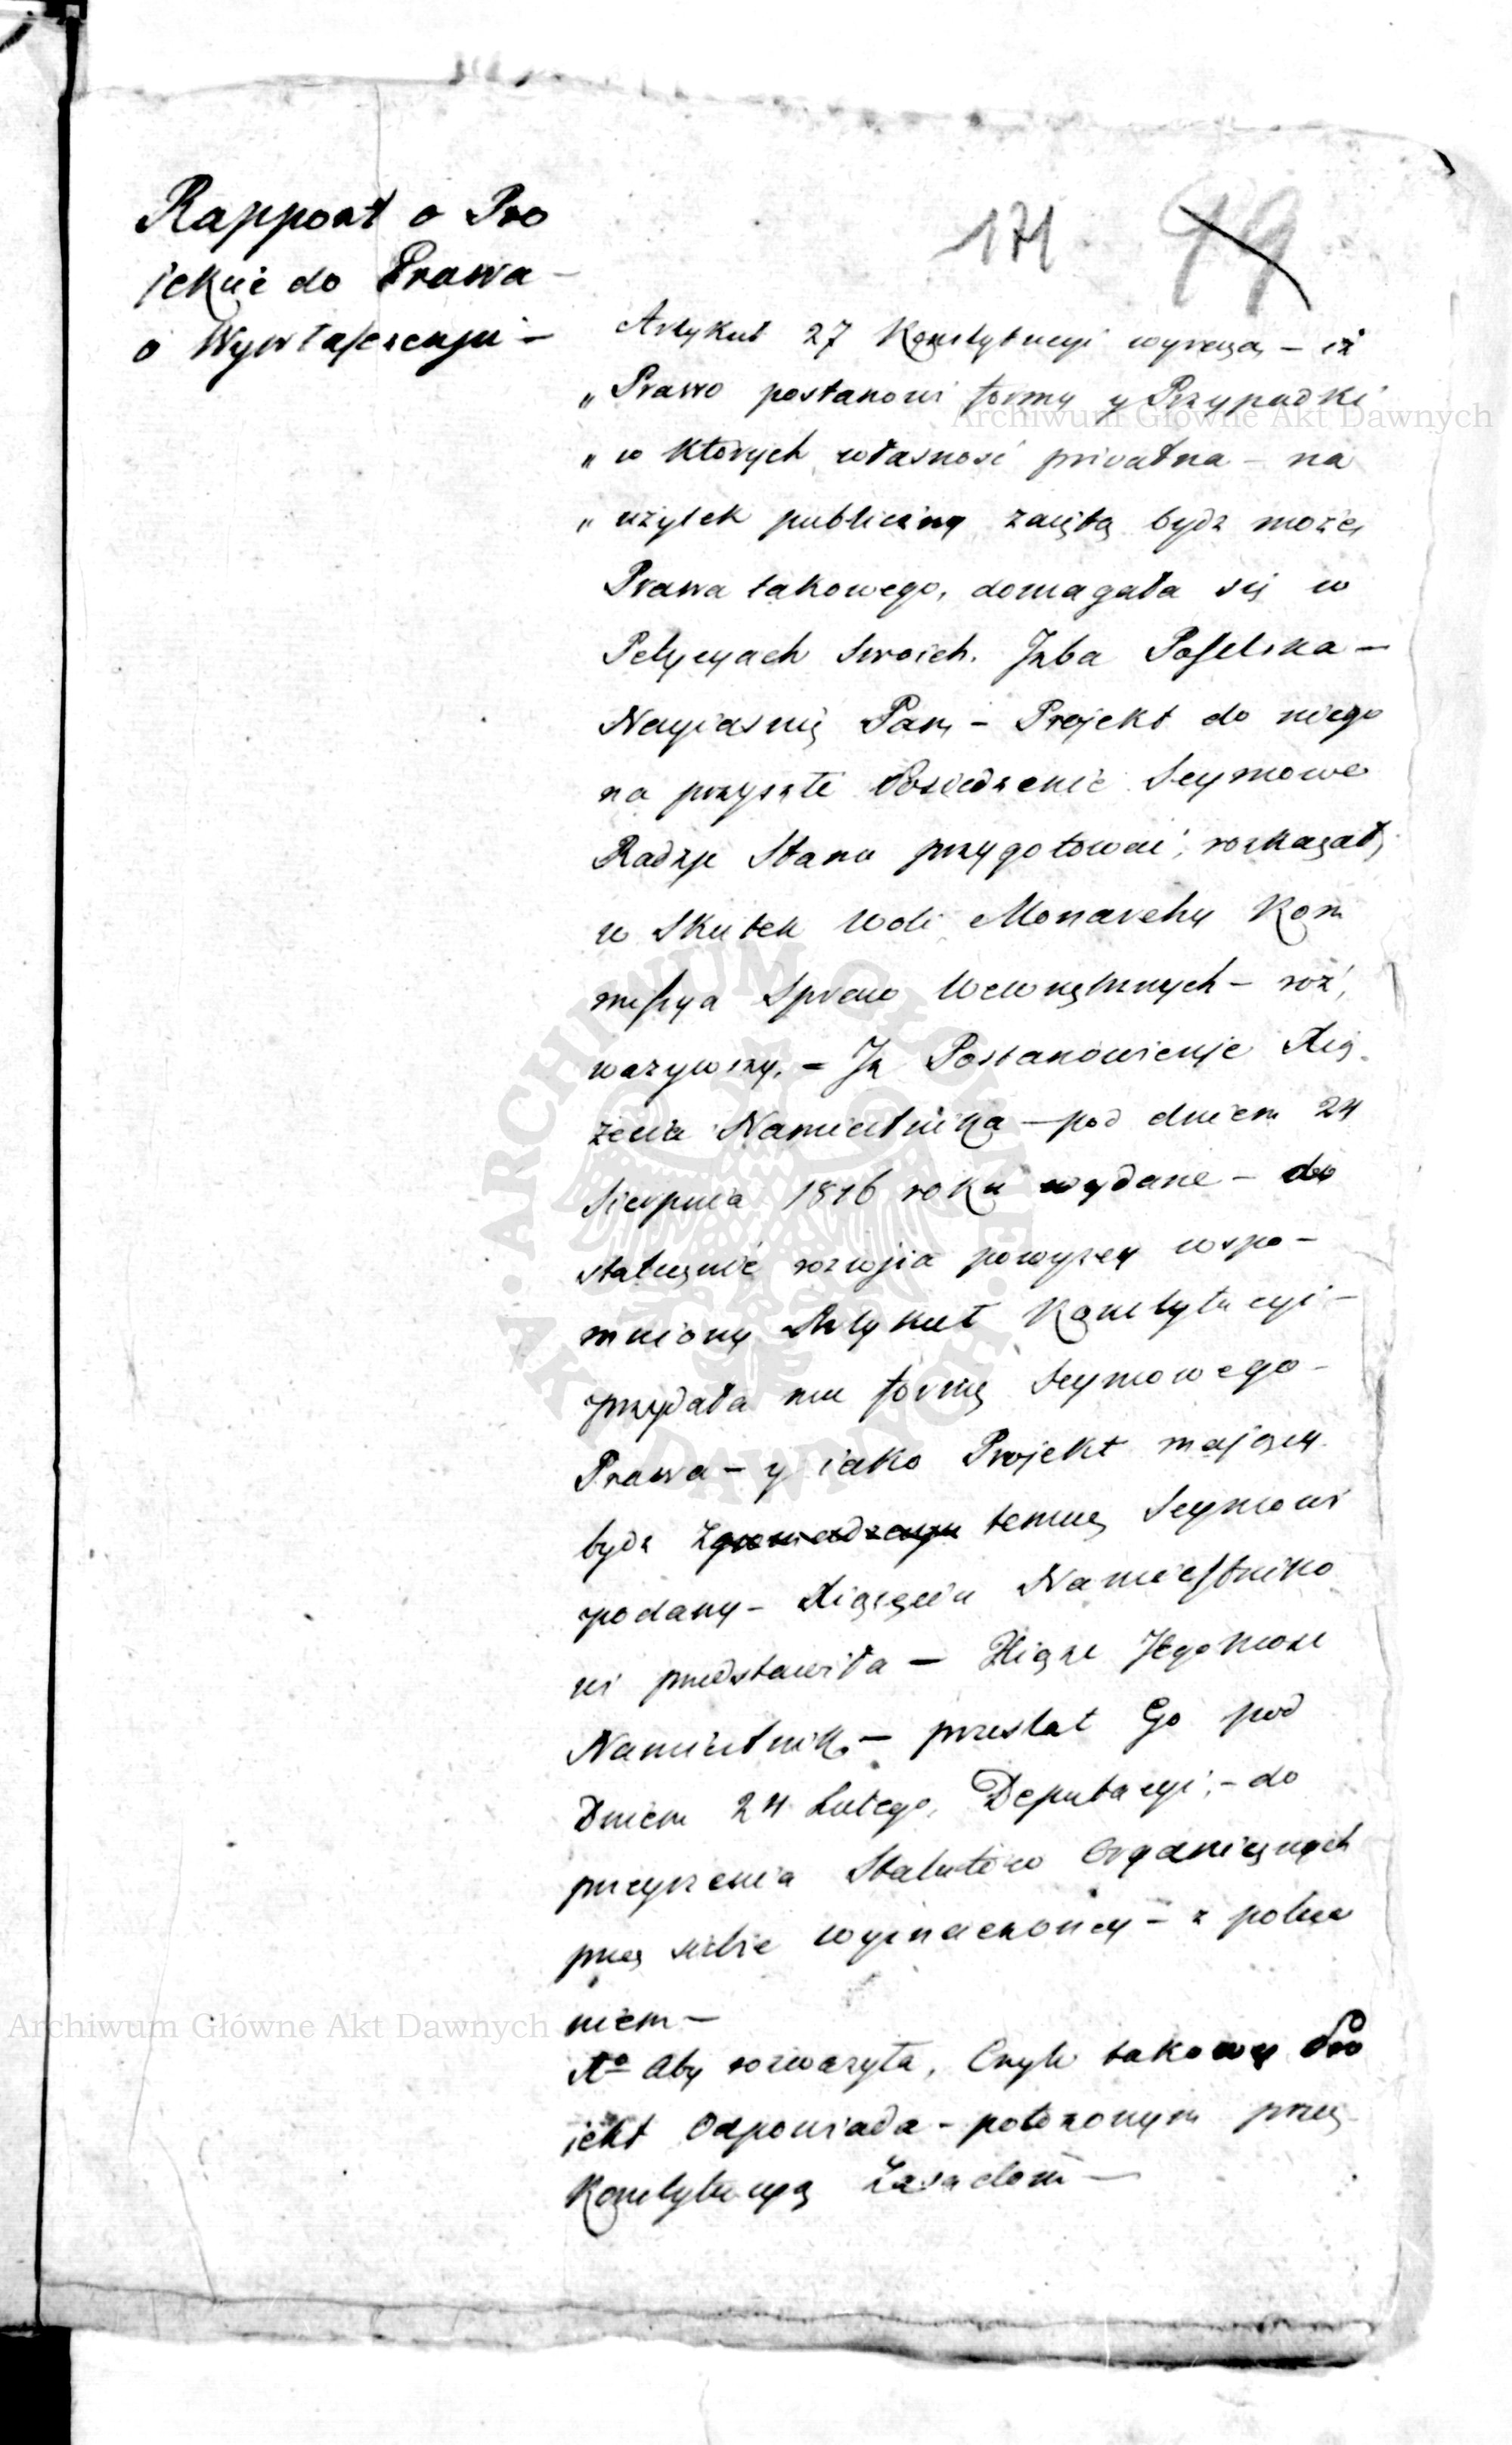 Rapport o Pro
iekcie do Prawa –
o Wywłaszczeniu –
171 99
Artykuł 27 Konstytucyi wyraża – iż
„ Prawo postanowi formy y Przypadki
„ w których własność privatna – na
„ użytek publiczny zaięta bydz może,
Prawa takowego, domagała się w
Petycyach Swoich. Izba Poselska –
Nayiaśnię Pan, – Projekt do niego
na przyszłe Posiedzenie Seymowe
Radzie Stanu przygotować, rozkazał,
w Skutek Woli Monarchy Kom
missya Spraw Wewnętrznych – roz,
ważywszy, – Iż Postanowienie Xią,
żęcia Namiestnika – pod dniem 24
Sierpnia 1816 roku wydane – do
statecznie rozwija powyżey wspo –
mniony Artykuł Konstytucyi –
przydała mu formę Seymowego –
Prawa – y iako Projekt maiący
bydz Zgromadzeniu temuż Seymowi
podany – Xiążęciu Namiestniko
wi przedstawiła – Xiąże Jegomość
Namiestnik – przesłał Go pod
Dniem 24 Lutego, Deputacyi, – do
przeyrzenia Statutów Organicznych
przez siebie wyznaczoney – z polece
niem –
A° Aby rozważyła, Czyli takowy Pro
iekt Odpowiada – położonym przez
Konstytucyą Zasadom –
Archiwum Główne Akt Dawnych
Archiwum Główne Akt Dawnych
ARCHIWUM GŁÓWNE AKT DAWNYCH